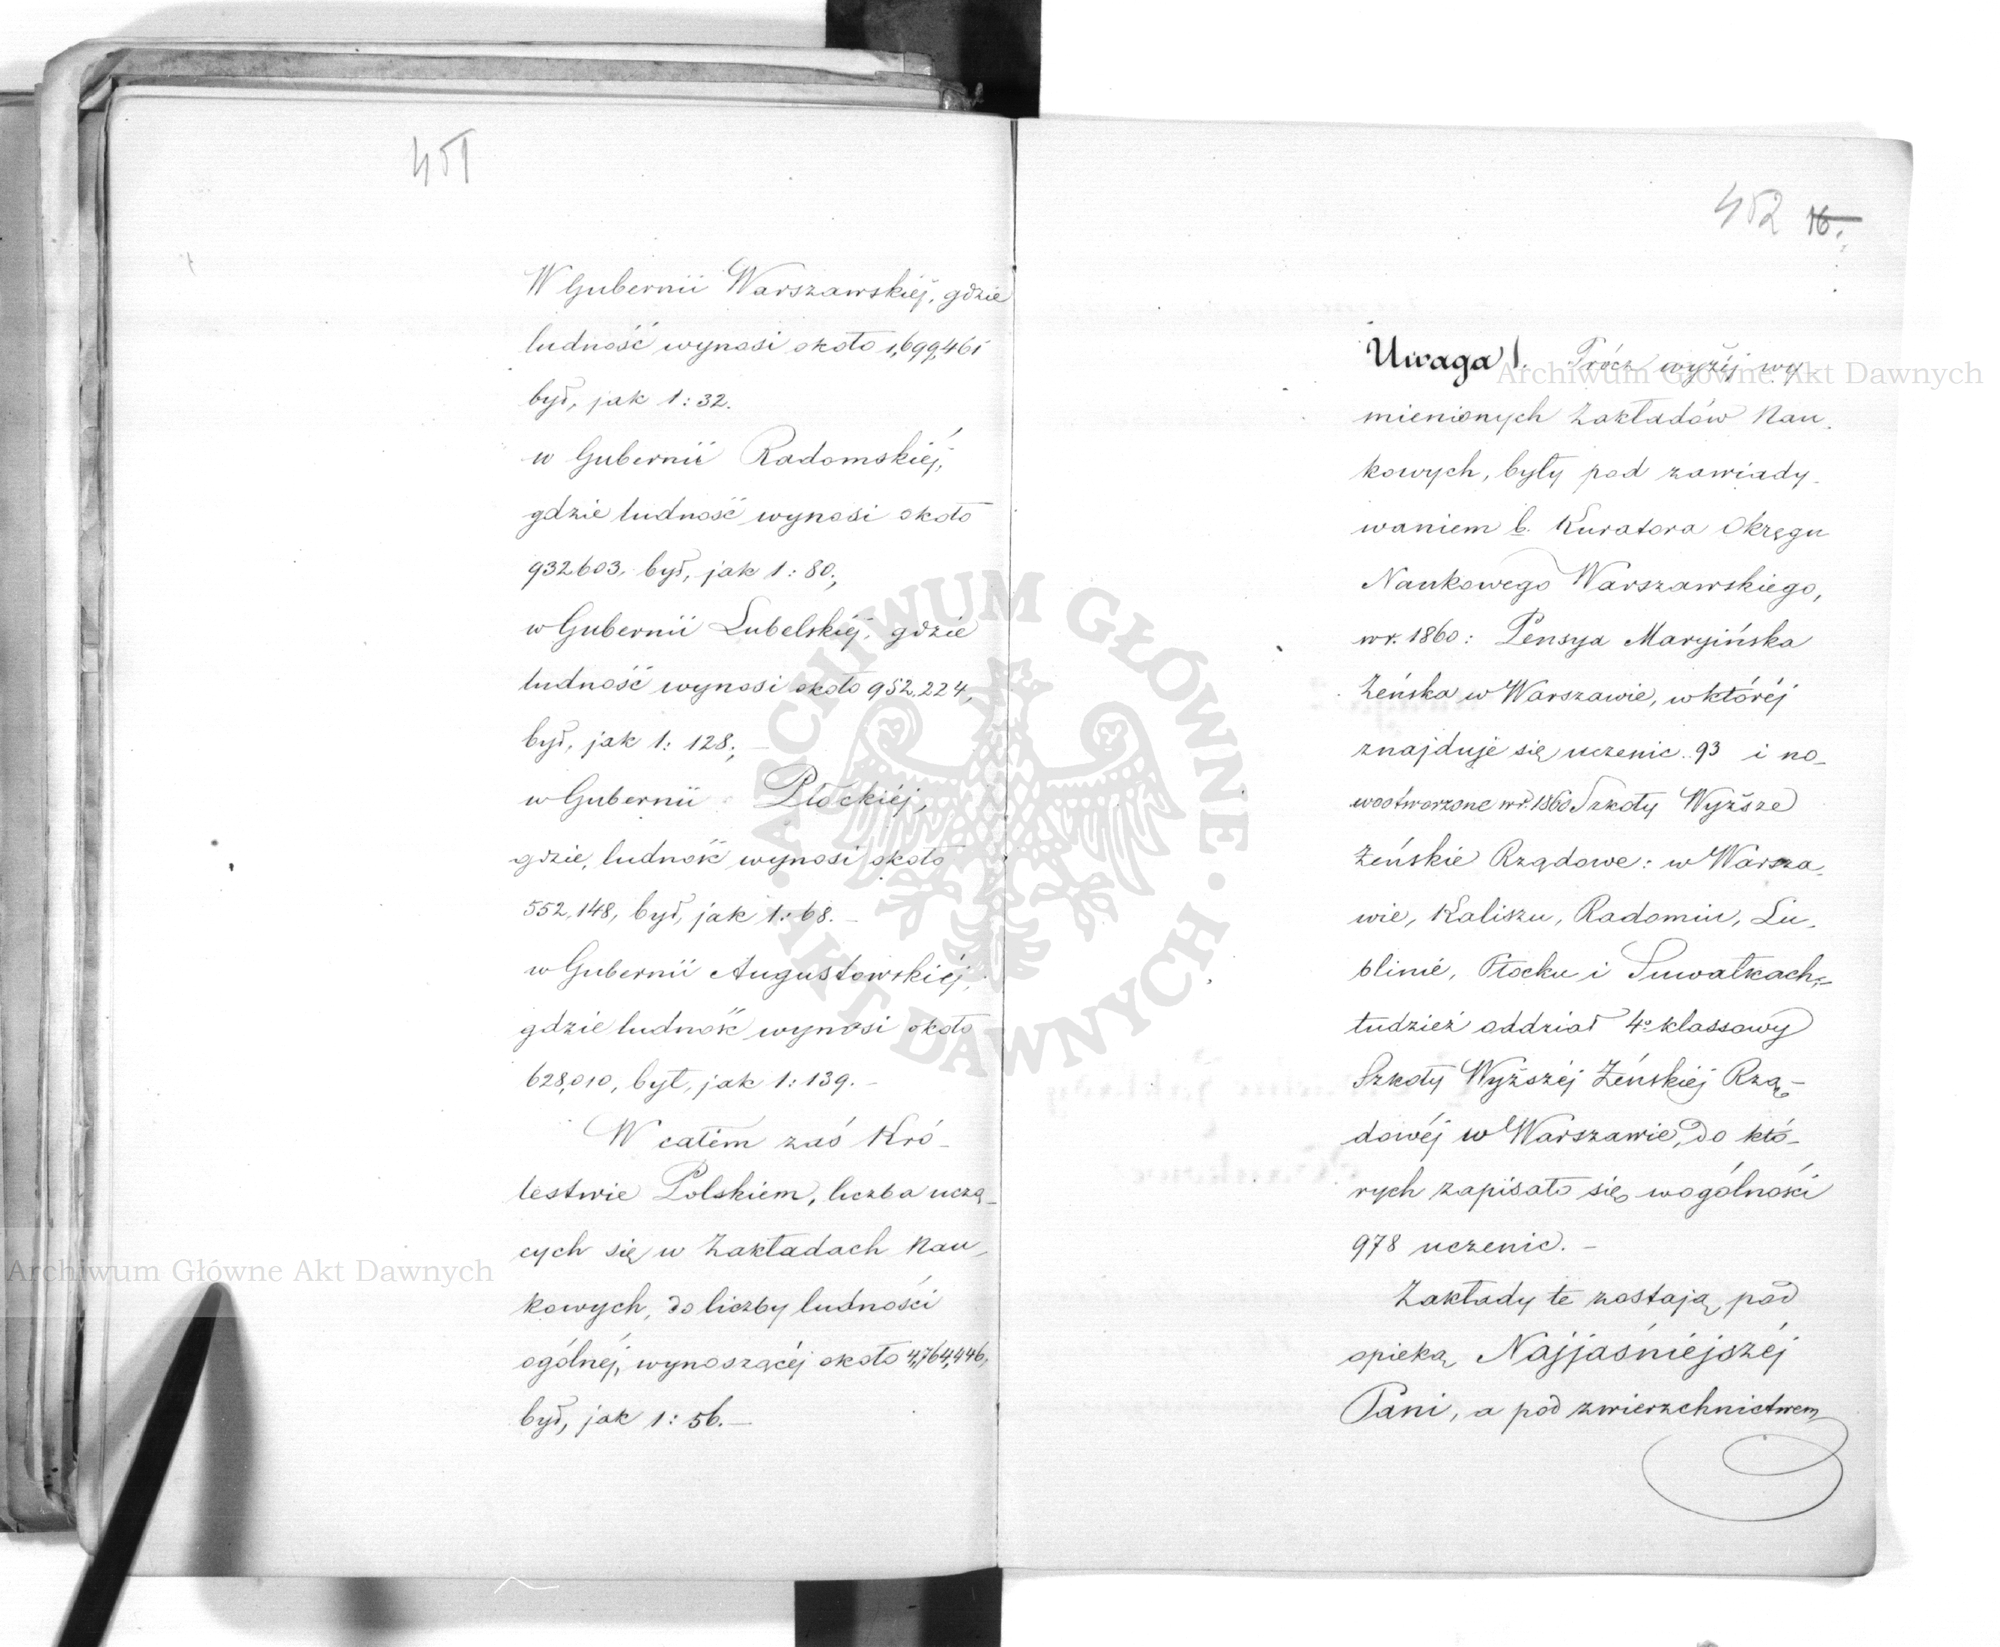 451
W Gubernii Warszawskiéj, gdzie
ludność wynosi około 1,699,461
był, jak 1:32.
w Gubernii Radomskiéj,
gdzie ludność wynosi około
932603, był, jak 1:80;
w Gubernii Lubelskiéj, gdzie
ludność wynosi około 952,224,
był, jak 1:128; –
w Gubernii Płockiéj,
gdzie, ludność wynosi około
552,148, był, jak 1:68. –
w Gubernii Augustowskiéj,
gdzie ludność wynosi około
628,010, był, jak 1:139. –
W całém zaś Kró-
lestwie Polskiem, liczba uczą-
cych się w Zakładach Nau-
kowych, do liczby ludności
ogólnéj, wynoszącéj około 4,764,446,
był, jak 1:56. –
452 16.
Uwaga 1. Prócz wyżéj wy-
mienionych Zakładów Nau-
kowych, były pod zawiady-
waniem b. Kuratora Okręgu
Naukowego Warszawskiego,
w r. 1860: Pensya Maryińska
Żeńska w Warszawie, w któréj
znajduje się uczenic 93 i no-
wootworzone w r. 1860 Szkoły Wyższe
Żeńskie Rządowe: w Warsza-
wie, Kaliszu, Radomiu, Lu-
blinie, Płocku i Suwałkach;–
tudzież oddział 4o klassowy
Szkoły Wyższéj Żeńskiéj Rzą-
dowéj w Warszawie, do któ-
rych zapisało się wogólności
978 uczenic. –
Zakłady te zostają pod
opieką Najjaśniéjszéj
Pani, a pod zwierzchnictwem
Archiwum Główne Akt Dawnych
Archiwum Główne Akt Dawnych
ARCHIWUM GŁÓWNE
AKT DAWNYCH